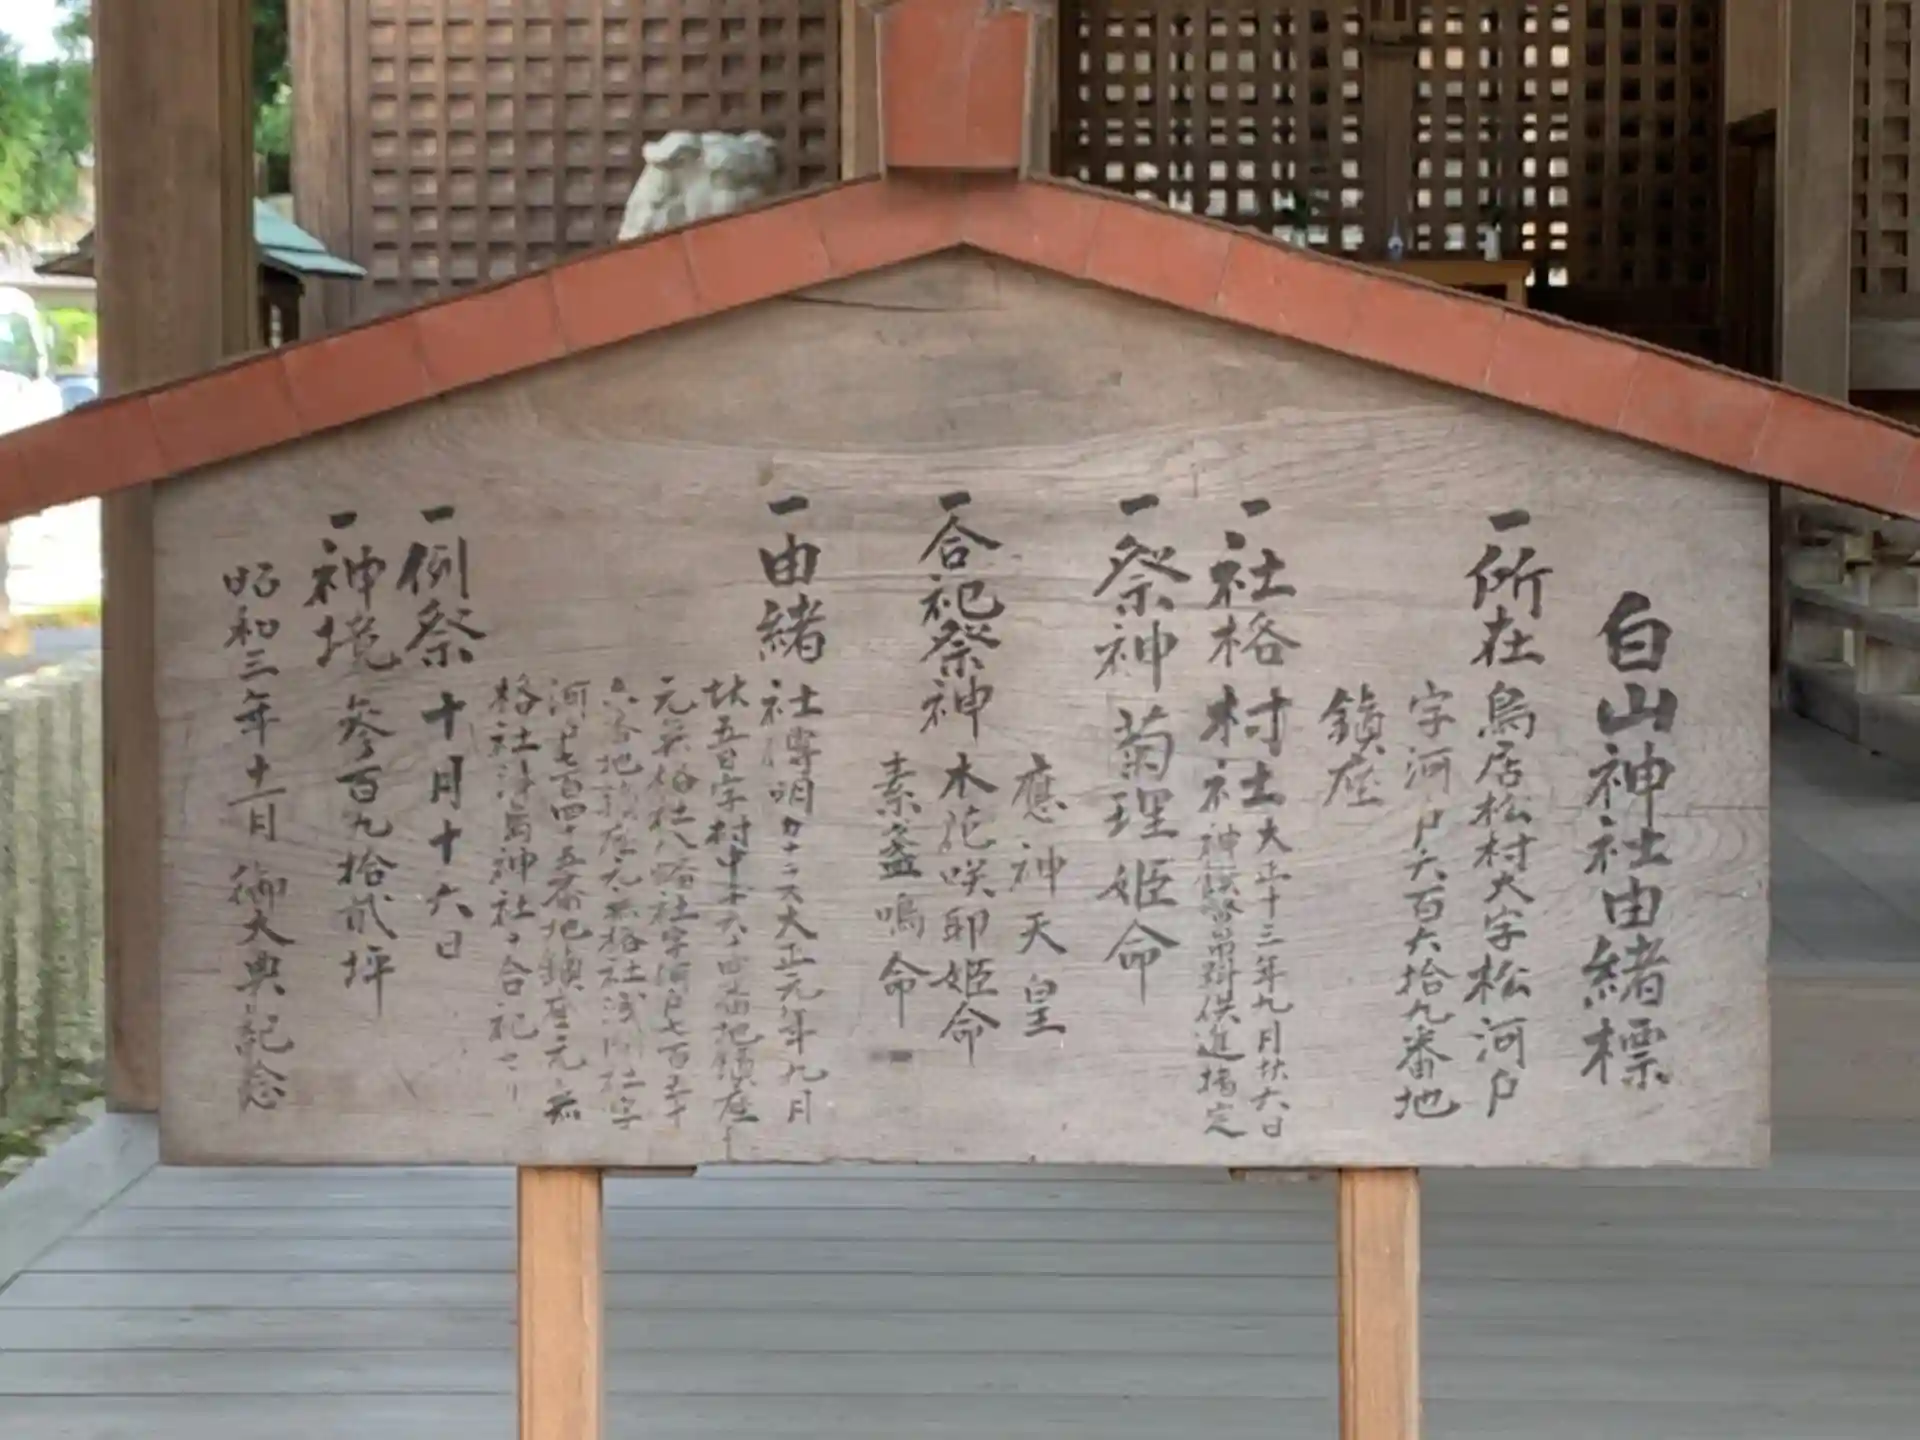 白山神社由緒標
一所在 鳥居松村大字松河戸
字河戸六百六拾九番地
鎮座
一社格 村社 大正十三年九月廿六日
神饌幣帛料供進指定
一祭神 菊理姫命
應神天皇
一合祀祭神 木花咲耶姫命
素盞嗚命
一由緒 社傳明カナラス大正元年九月
廿五日字村中
元無格社八幡社字河戸七百五十
六番地鎮座元無格社浅間社字
河戸七百四十五番地鎮座元無
格社津島神社ヲ合祀セリ
一例祭 十月十六日
一神境 参百九拾貳坪
昭和三年十一月 御大典記念